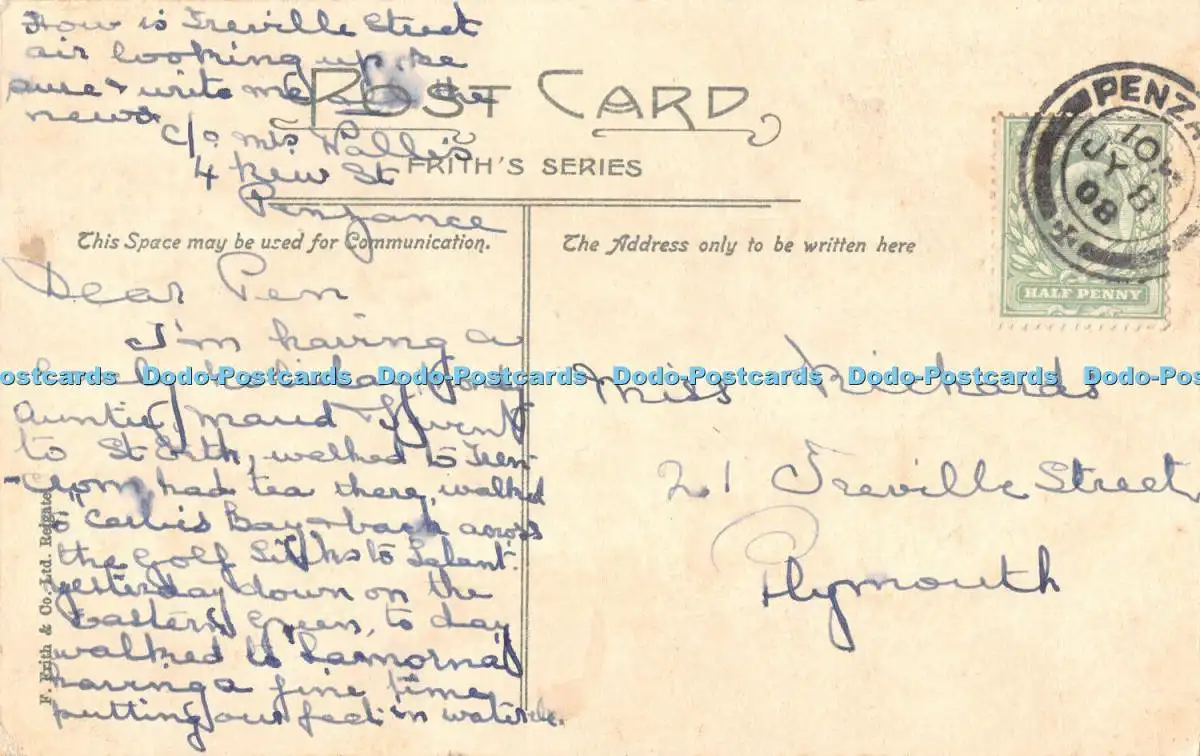 How is Treville Street
air looking up. be
sure & write me the
news
c/o Mrs Wallis
4 New St
Penzance
POST CARD
FRITH'S SERIES
This Space may be used for Communication.
The Address only to be written here
PENZA
10
JY 8
08
HALF PENNY
Dear Pen
I'm having a
Dodo-Postcards Dodo-Postcards Dodo-Postcards Dodo-Postcards Dodo-Postcards
Auntie, Maud & I went
to St Erth, walked to Tren-
-crom had tea there, walked
to Carbis Bay & back across
the Golf Links to Lelant.
yesterday down on the
Eastern Green, to day
walked to Lamorna
having a fine time
putting our feet in water etc.
Miss Rickards
21 Treville Street
Plymouth
F. Frith & Co. Ltd. Reigate